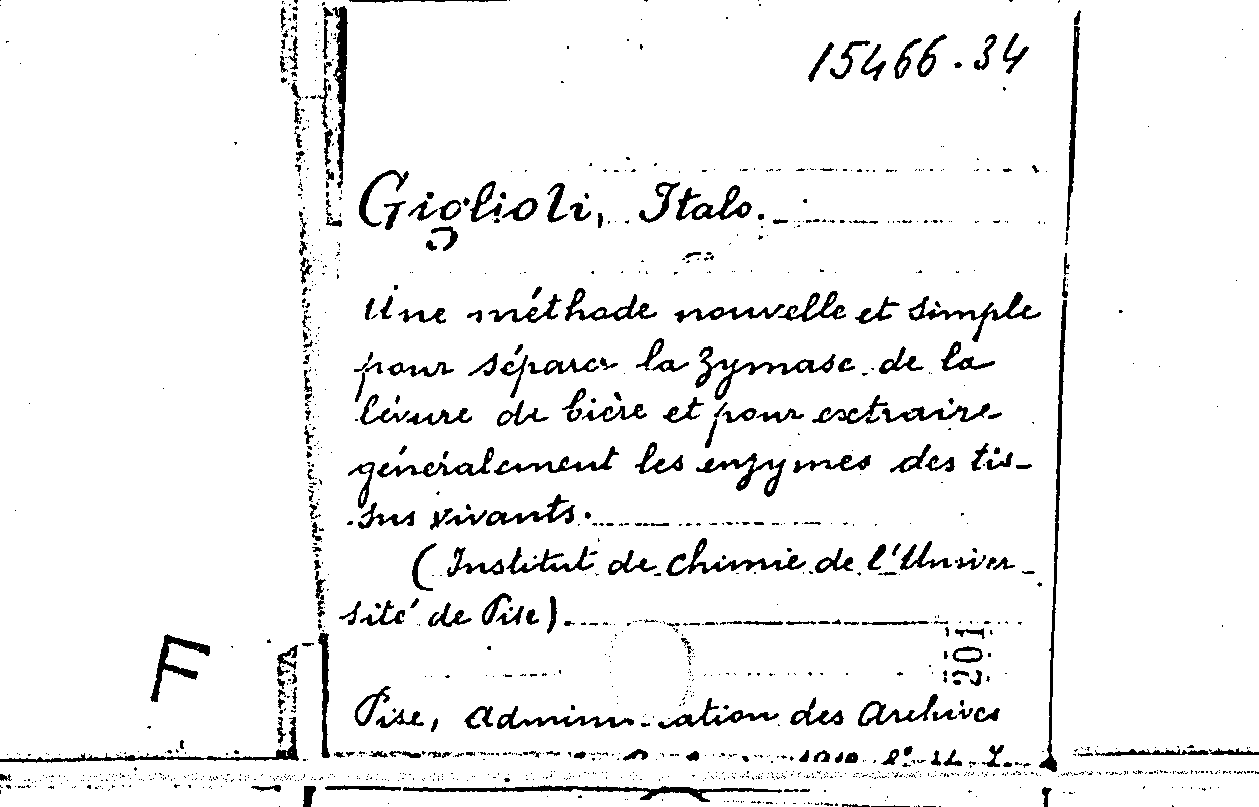 15466.34
Giglioli, Italo.
Une méthode nouvelle et simple
pour séparer la zymase de la
levure de bière et pour extraire
généralement les enzymes des tis-
sus vivants.
(Institut de chimie de l'Univer-
sité de Pise).
201
F
Pise, des Archives